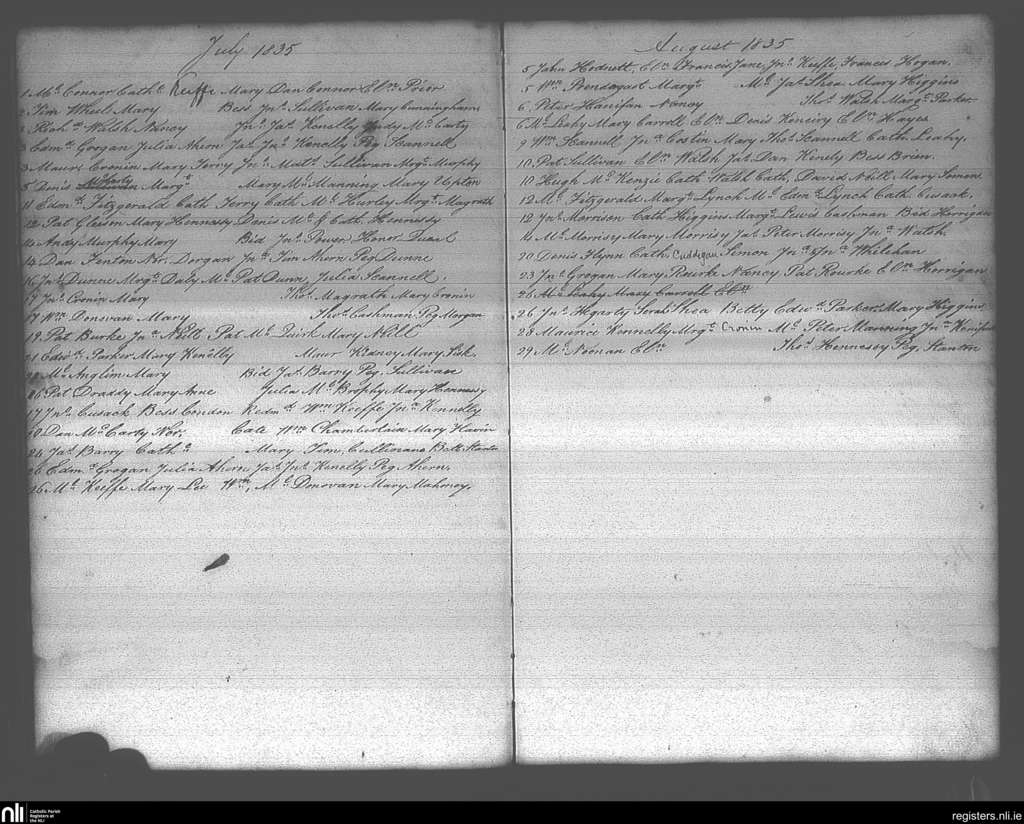 July 1835
1 Mc. Connor Cathe. Keiffe Mary Dan Connor Elln Poier
2 Tim Wheel Mary Bess Jno. Sullivan Mary Cunningham
3 Richd. Walsh Nancy Jno. Jas. Kenelly Judy Mc. Carty
3 Edmd. Grogan Julia Ahern Jas. Jno. Kenelly Peg Scannell
3 Maure Cronin Mary Terry Jno. Matt. Sullivan Mrgt. Murphy
5 Denis McCarty Margt. Mary Mc. Manning Mary Upton
11 Edmd. Fitzgerald Cath Terry Cath Mc. Hurley Mrgt. Magrath
12 Pat Gleeson Mary Hennessy Denis Mc. & Cath. Hennessy
14 Andy Murphy Mary Bid Jno. Power Honor
14 Dan Fenton Nr. Dorgan Jno. Tim Ahern Peg Dunne
16 Jno. Dunne Mrgt. Daly Mc. Pat Dunn, Julia Scannell.
17 Jno. Cronin Mary Thos. Magrath Mary Cronin
17 Wm Donovan Mary Thos. Cashman Peg Morgan
19 Pat Burke Jna. Neill Pat Mc. Quirk Mary Neill
21 Edwd. Parker Mary Kenelly Maur Kidney Mary Fisk.
Mc. Anglim Mary Bid Jas. Barry Peg. Sullivan
26 Pat Draddy Mary Ane Julia Mc. Brophy Mary Hennessy
17 Jno. Cusack Bess Condon Redmd. Wm Keeffe Jna. Kennelly
19 Dan Mc. Carty Nor. Cate Wm Chamberlain Mary Havin
24 Jas. Barry Cathe. Mary Tim, Cullinane Bell Stanton
26 Edmd. Grogan Julia Ahern Jas. Jno. Kenelly Peg Ahern.
26 Mc. Keeffe Mary Lee Wm, Mc. Donovan Mary Mahoney.
August 1835
5 John Hodnett, Elln Francis Jane, Jno. Keeffe, Frances Hogan.
5 Wm Prendergast Margt. Mc. Jas. Shea Mary Higgins
6 Peter Hanifan Nancy Thos. Walsh Margt. Parker
6 Mc. Leahy Mary Carroll Elln Denis Keneiry Elln Hayes
9 Wm Scannell Jna Costin Mary Thos. Scannell Cath. Leahy.
10 Pat Sullivan Elln Walsh Jas. Dan Kinely Bess Brien.
10 Hugh Mc. Kenzie Cath Walsh Cath, David Neill Mary Semens
12 Mc. Fitzgerald Margt. Lynch Mc. Edmd. Lynch Cath. Cusack.
12 Jno. Morrison Cath Higgins Margt. Lewis Cashman Bid Horrigan
14 Mc. Morrisy Mary Morrisy Jas. Peter Morrisy Jna. Walsh.
20 Denis Flynn Cath Cuddigan Semon Jno. & Jna. Whilehan
23 Jno. Grogan Mary Rourke Nancy Pat Rourke Elln Horrigan
26 Mc Leahy Mary Carroll Elln
26 Jno. Hegarty Serah Shea Betty Edwd. Parker Mary Higgins
28 Maurice Kennelly Mrgt. Cronin Mc. Peter Manning Jna. Hanifan
29 Mc. Noonan Elln Thos. Hennessy Peg. Stanton
nli Catholic Parish Registers at the NLI
registers.nli.ie